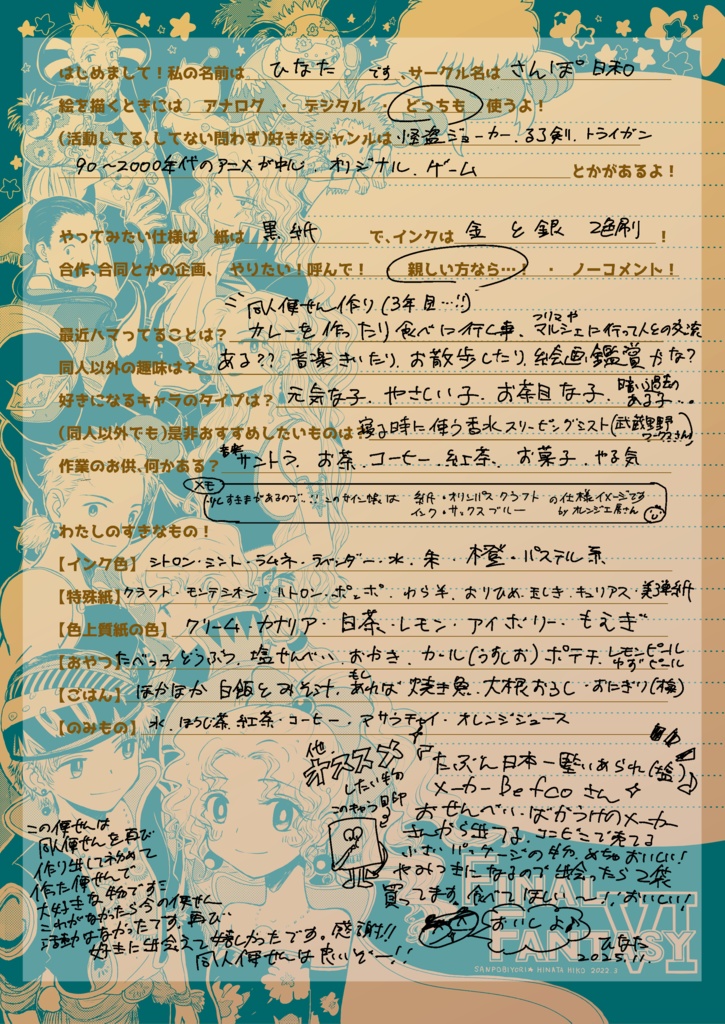 はじめまして！私の名前は ひなた です、サークル名は さんぽ日和
絵を描くときには アナログ ・ デジタル ・ どっちも 使うよ！
(活動してる、してない問わず)好きなジャンルは 怪盗ジョーカー、るろ剣、トライガン
90〜2000年代のアニメが中心、オリジナル、ゲーム とかがあるよ！
やってみたい仕様は 紙は 黒紙 で、インクは 金 と 銀 2色刷 ！
合作、合同とかの企画、 やりたい！呼んで！ 親しい方なら…！ ・ ノーコメント！
同人便せん作り(3年目…!!)
最近ハマってることは？ カレーを作ったり食べに行く事、フリマやマルシェに行って人との交流
同人以外の趣味は？ ある?? 音楽きいたり、お散歩したり、絵画鑑賞かな?
好きになるキャラのタイプは？ 元気な子、やさしい子、お茶目な子、暗い過去のある子…
(同人以外でも)是非おすすめしたいものは 寝る時に使う香水スリーピングミスト(武蔵野ワークスさん)
作業のお供、何かある？ 音楽 サントラ、お茶、コーヒー、紅茶、お菓子、やる気
メモ
少しすきまがあるので…!! このサイン帳は 紙・オリンパスクラフト の仕様イメージです
インク・サックスブルー by オレンジ工房さん
わたしのすきなもの！
【インク色】 シトロン・ミント・ラムネ・ラベンダー・水・朱・橙・パステル系
【特殊紙】 クラフト・モンテシオン・ハトロン・ポッポ、わら半、おりひめ、里しき・キュリアス、美弾紙
【色上質紙の色】 クリーム・カナリア・白茶・レモン・アイボリー・もえぎ
【おやつ】 たべっ子どうぶつ、塩せんべい、おかき、カール(うすしお)ポテチ、レモンピール ゆずピール
【ごはん】 ほかほか白飯とみそ汁、もしあれば焼き魚、大根おろし・おにぎり(梅)
【のみもの】 水、ほうじ茶、紅茶・コーヒー・マサラチャイ・オレンジジュース
他、
オススメ
したい物
このキャラ目印
『たぶん日本一堅いあられ(塩)』
メーカーBefcoさん
おせんべい、ばかうけのメーカー
さんから出てる、コンビニで売てる
小さいパッケージの物、めちゃおいしい!
やみつきになるので出会ったら2袋
買ってます。食べてほしい〜!!おいしい!
おいしよ♪
ひなた
2025.11.
この便せんは
同人便せんを再び
作り出して初めて
作た便せんで
大好きな物です!!
これがなかったら今の便せん
活動はなかったです。再び…
好きに出会えて嬉しかったです。感謝!!
同人便せんは良いぞー!!
FINAL
FANTASY
VI
SANPOBIYORI HINATA HIKO 2022.3